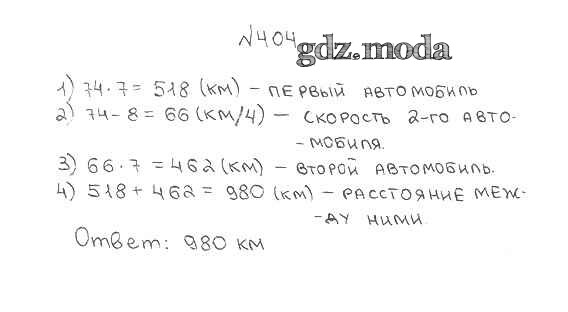 №404
gdz.moda
1) 74·7= 518 (км) – ПЕРВЫЙ АВТОМОБИЛЬ
2) 74-8=66 (км/ч) – СКОРОСТЬ 2-ГО АВТО-
-МОБИЛЯ.
3) 66·7=462 (км) – ВТОРОЙ АВТОМОБИЛЬ.
4) 518+462= 980 (км) – РАССТОЯНИЕ МЕЖ-
-ДУ НИМИ.
Ответ: 980 км